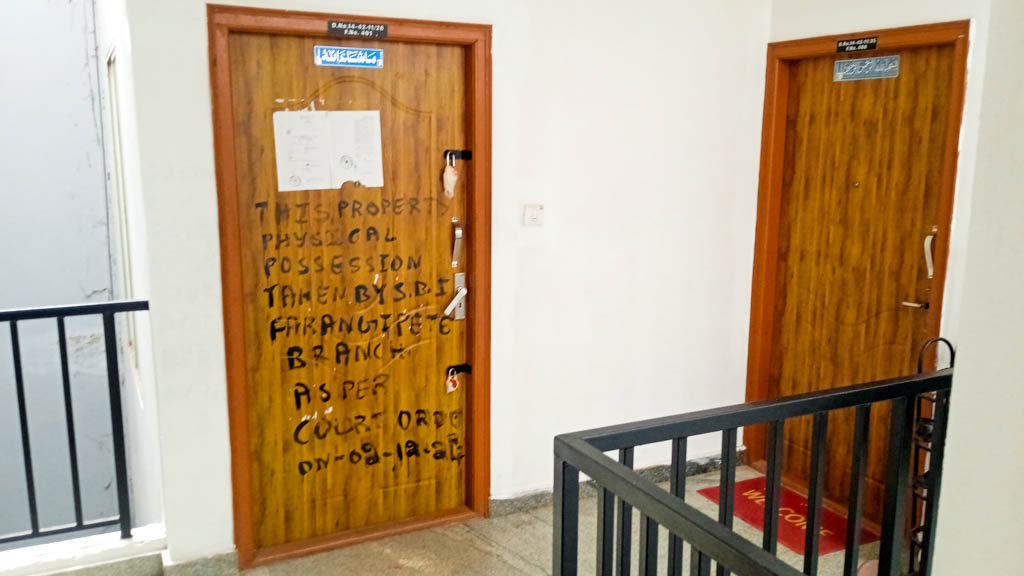 D.No.14-42-11/28
F.No. 401
THIS PROPERTY
PHYSICAL
POSSESSION
TAKEN BY S.B.I
FARANGIPETE
BRANCH
AS PER
COURT ORDE
ON-02-12-
F.No.
WELCOME